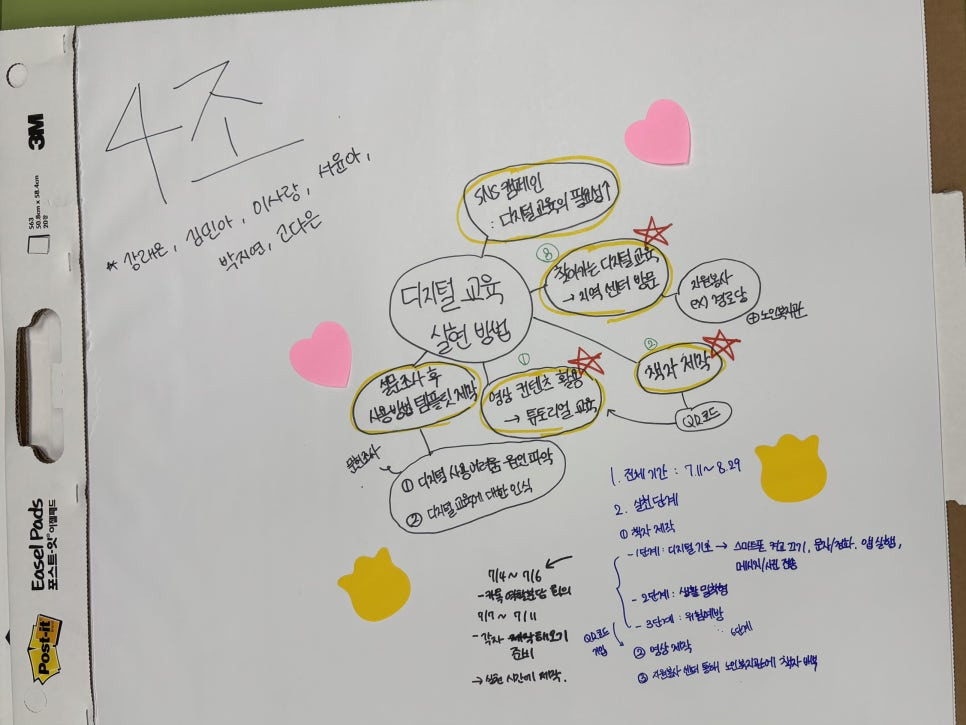 3M
563
50.8cm x 58.4cm
20장
Easel Pads
포스트-잇® 이젤패드
Post-it
4조
** 강래은, 김민아, 이사랑, 서윤아,
박지연, 고다은
SNS 캠페인
: 디지털 교육의 필요성↑
⑧
찾아가는 디지털 교육
→ 지역 센터 방문
자원봉사
ex) 경로당
⊕노인복지관
디지털 교육
실현 방법
②
책자 제작
QR코드
①
영상 컨텐츠 활용
→ 튜토리얼 교육
설문조사 후
사용방법 템플릿 제작
문헌조사
① 디지털 사용 어려움 요인 파악
② 디지털 교육에 대한 인식
1. 전체 기간 : 7.11 ~ 8.29
2. 실천 단계
① 책자 제작
-1단계 : 디지털 기초 → 스마트폰 켜고 끄기, 문자/전화, 앱 실행,
메시지/사진 전송
-2단계 : 생활 밀착형
-3단계 : 위험예방
QR코드
② 영상 제작
③ 자원봉사 센터 통해 노인복지관에 책자
7/4 ~ 7/6
- 역할분담 회의
7/7 ~ 7/11
- 각자 해오기
준비
→ 제작.